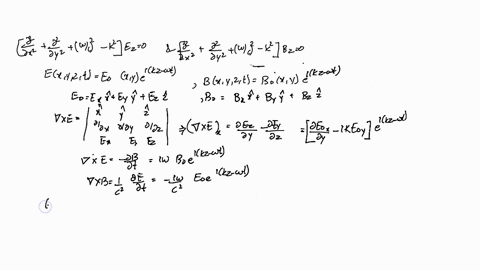 [∂²/∂x² + ∂²/∂y² + (ω)² - k²] Ez=0 & [∂²/∂x² + ∂²/∂y² + (ω)² - k²] Bz=0
E(x,y,z,t)=E0 (x,y) e^i(kz-ωt) , B(x,y,z,t) = B0(x,y) e^i(kz-ωt)
E0=Ex x̂+Ey ŷ + Ez ẑ , B0 = Bx x̂ + By ŷ + Bz ẑ
∇×E = | x̂ ŷ ẑ |
| ∂/∂x ∂/∂y ∂/∂z | ⇒(∇×E)x = ∂Ez/∂y - ∂Ey/∂z = [∂E0x/∂y - ikE0y] e^i(kz-ωt)
| Ex Ey Ez |
∇×E = -∂B/∂t = iω B0 e^i(kz-ωt)
∇×B = 1/c² ∂E/∂t = -iω/c² E0 e^i(kz-ωt)